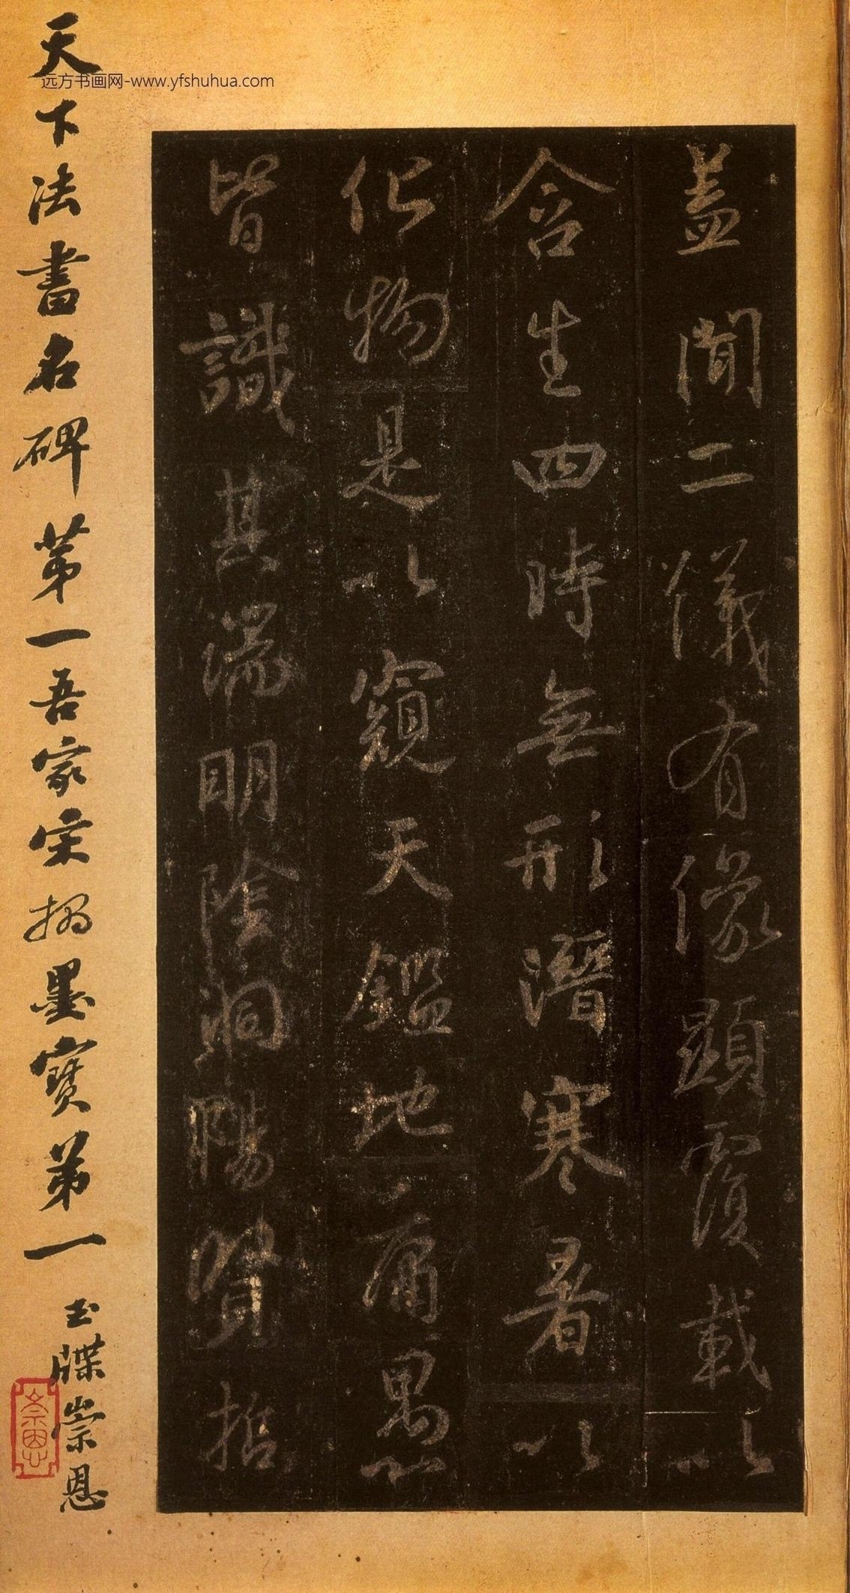 蓋聞二儀有像顯覆載以
含生四時無形潛寒暑以
化物是以窺天鑑地庸愚
皆識其端明陰洞陽賢哲
天下法書名碑第一吾家宋搨墨寶第一
玉牒崇恩
崇恩
远方书画网-www.yfshuhua.com